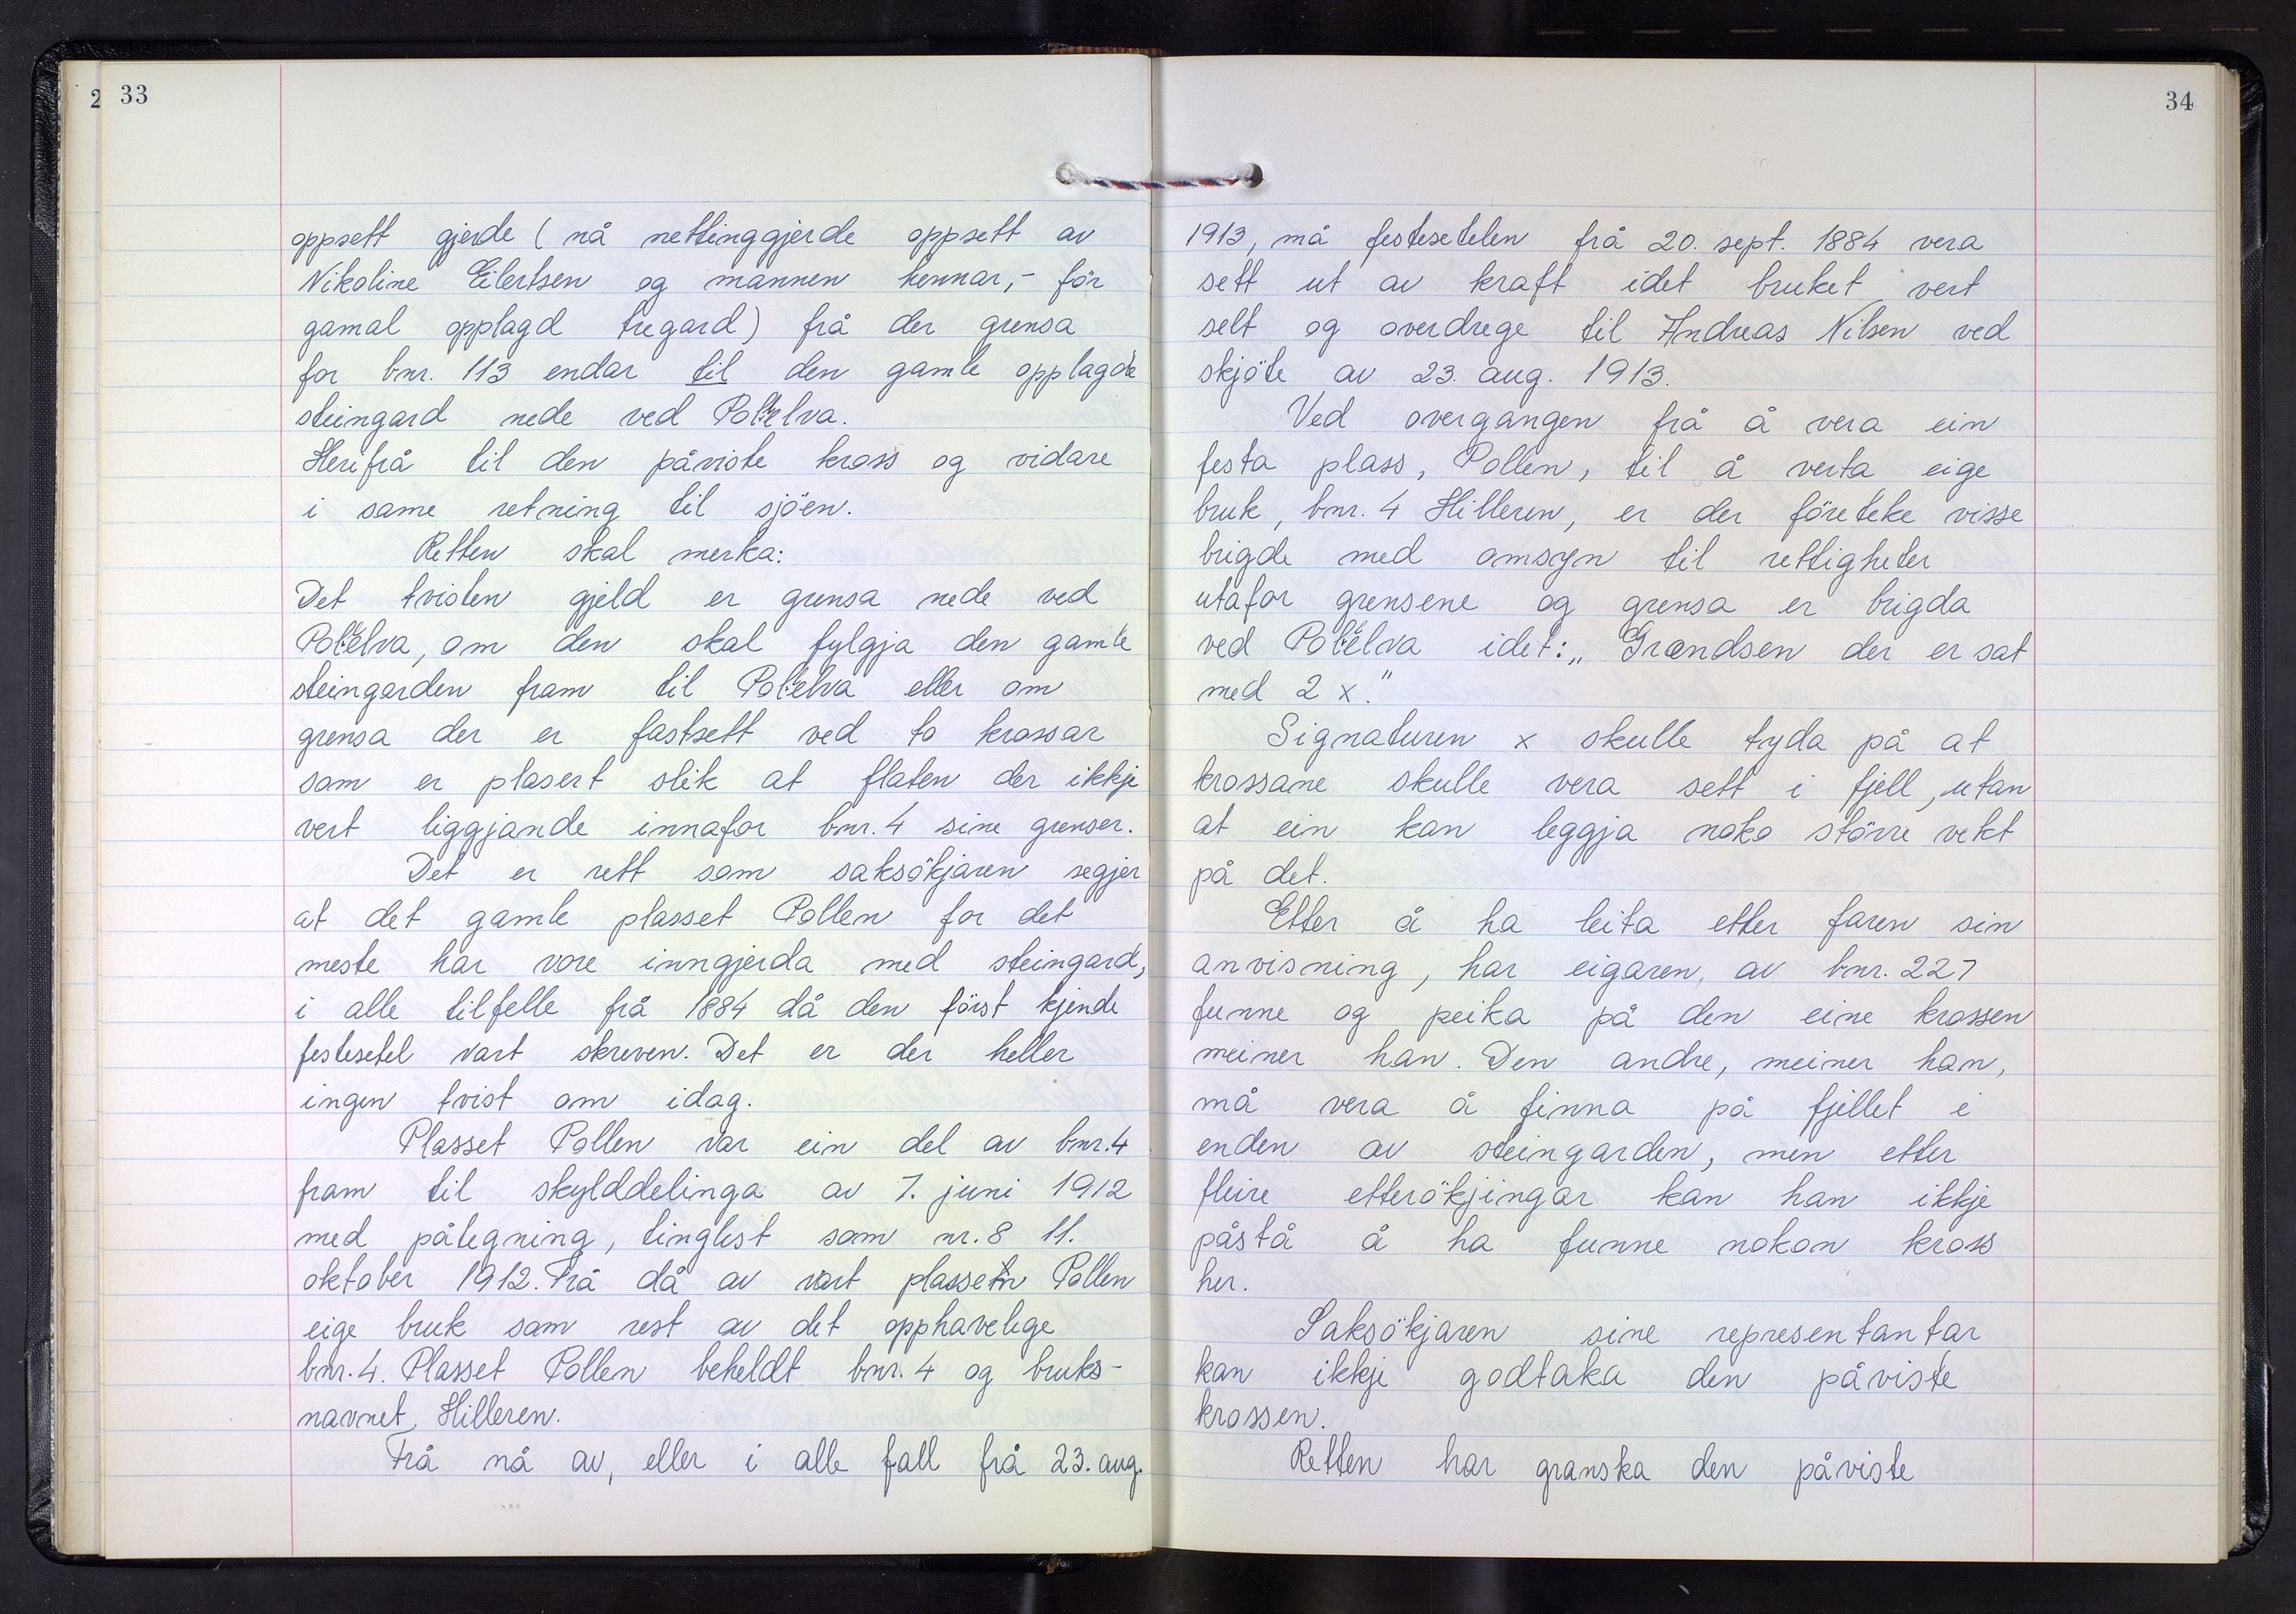 2 33
oppsett gjerde ( nå nettinggjerde oppsett av
Nikoline Eilertsen og mannen hennar, - för
gamal opplagd tregard) frå der grensa
for bnr. 113 endar til den gamle opplagde
steingard nede ved elva.
Herifrå til den påviste kross og vidare
i same retning til sjöen.
Retten skal merka:
Det tvisten gjeld er grensa nede ved
elva, om den skal fylgja den gamle
steingarden fram til elva eller om
grensa der er fastsett ved to krossar
som er plasert slik at flaten der ikkje
vert liggjande innafor bnr. 4 sine grenser.
Det er rett som saksökjaren segjer
at det gamle plasset Pollen for det
meste har vore inngjerda med steingard,
i alle tilfelle frå 1884 då den först kjende
festesetel vart skreven. Det er der heller
ingen tvist om idag.
Plasset Pollen var ein del av bnr. 4
fram til skylddelinga av 7. juni 1912
med påtegning, tinglest som nr. 8 11.
oktober 1912. Frå då av vart Pollen
eige bruk som rest av det opphavelege
bnr. 4. Plasset Pollen beheldt bnr. 4 og bruks-
navnet Hilleren.
Frå nå av, eller i alle fall frå 23. aug.
34
1913, må festesetelen frå 20. sept. 1884 vera
sett ut av kraft idet bruket vert
selt og overdrege til Andreas Nilsen ved
skjöte av 23. aug. 1913.
Ved overgangen frå å vera ein
festa plass, Pollen, til å verta eige
bruk, bnr. 4 Hilleren, er der företeke visse
brigde med omsyn til rettigheter
utafor grensene og grensa er brigda
ved elva idet: „Grændsen der er sat
med 2 x."
Signaturen x skulle tyda på at
krossane skulle vera sett i fjell, utan
at ein kan leggja noko större vekt
på det.
Etter å ha leita etter faren sin
anvisning, har eigaren, av bnr. 227
funne og peika på den eine krossen
meiner han. Den andre, meiner han,
må vera å finna på fjellet i
enden av steingarden, men etter
fleire etterökjingar kan han ikkje
påstå å ha funne nokon kross
her.
Saksökjaren sine representantar
kan ikkje godtaka den påviste
krossen.
Retten har granska den påviste